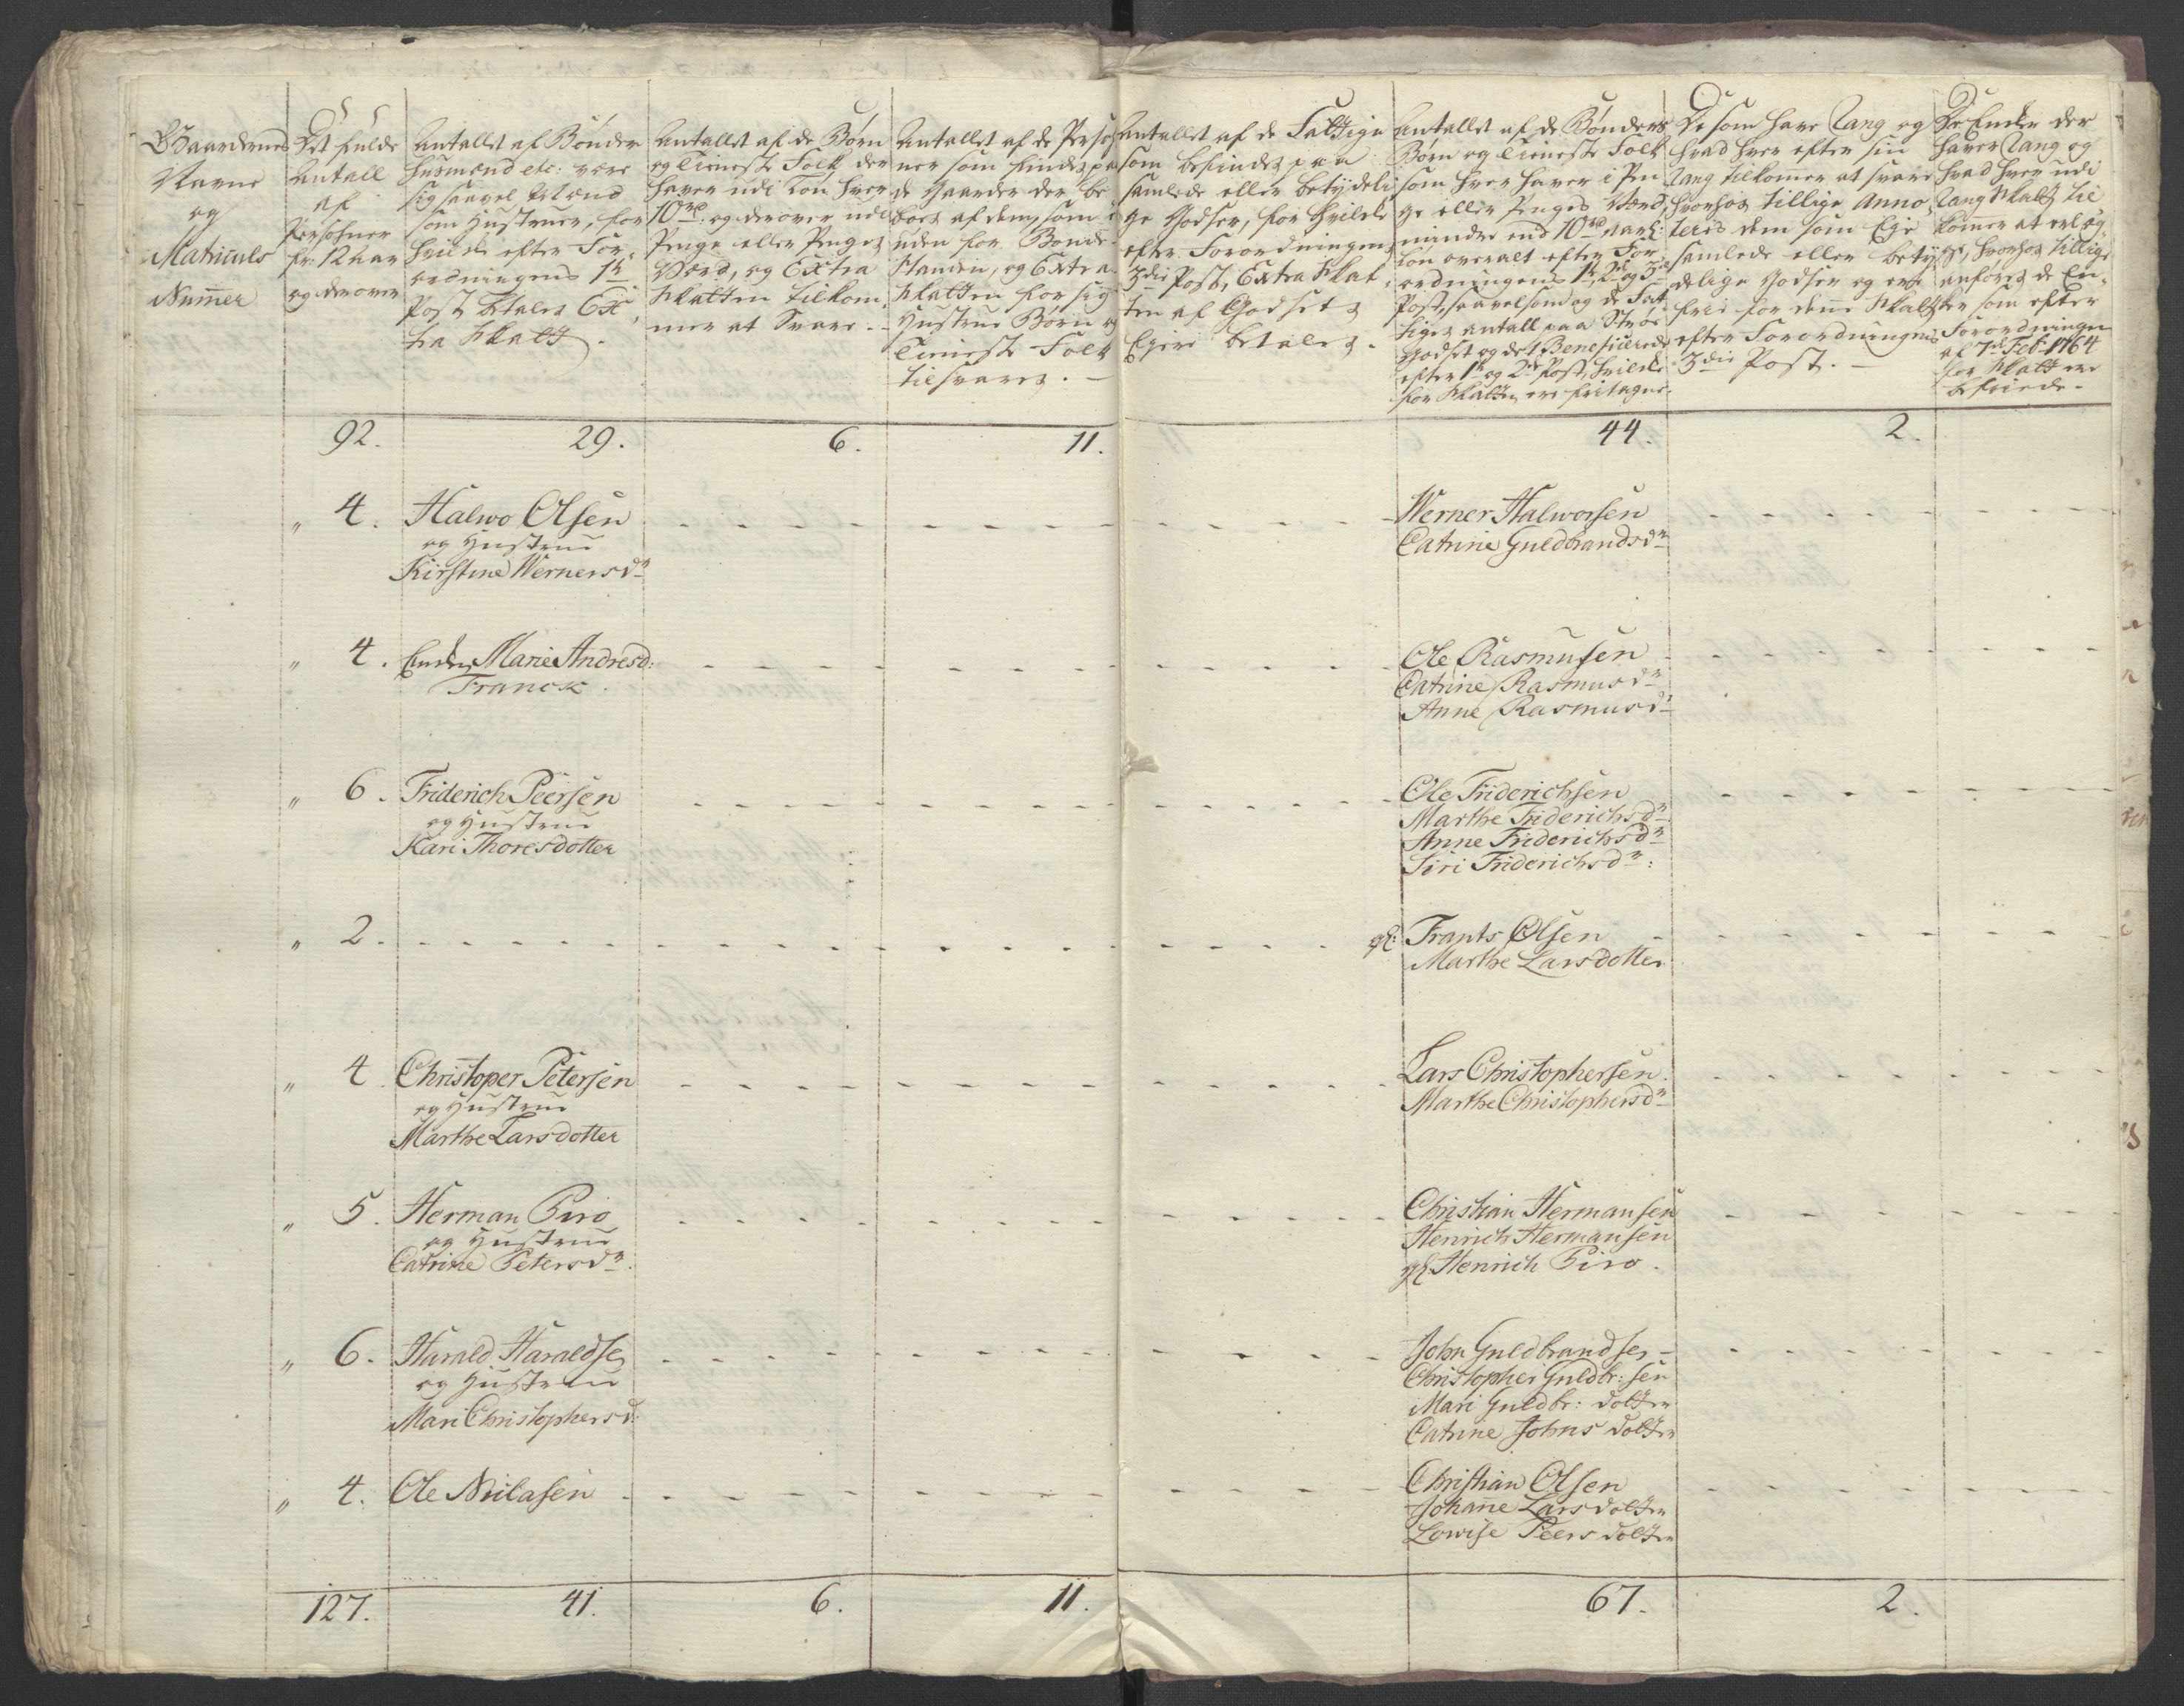 Gaardernes
Navne
og
Matriculs
Numer
Det fulde
Antall
af
Persohner
fr: 12 Aar
og derover
Antallet af Bønder
Husmænd etc: være
sig saavel Mænd
som Hustruer, for
hvilke efter For-
ordningens 1te
Post betales Ex-
tra Skatt.
Antallet af de Børn
og Tieneste Folk der
haver udi Løn hver
10 rd. og derover udi
Penge eller Penges
Værd, og Extra
Skatten tilkom-
mer at Svare.
Antallet af de Perso-
ner som findes paa
de Gaarder der be-
boes af dem, som ere
uden for Bonde-
Standen, og Extra
Skatten for sig
Hustrue Børn og
Tieneste Folk
tilsvares.
Antallet af de Fattige
som befindes paa
samlede eller betydeli-
ge Godser, for hvilke
efter Forordningens
3die Post, Extra Skat-
ten af Godsets
Ejere betales.
Antallet af de Bønders
Børn og Tieneste Folk
som hver haver i Pen-
ge eller Penges Værd,
mindre end 10 rd aarl:
Løn overalt efter For-
ordningens 1te, 2de og 3die
Post, saavelsom og de Fat-
tiges antall paa Strøe
Godset og det Beneficerede
efter 1te og 2den Post, hvilke
for Skatten ere fritagne.
De som have Rang og
hvad hver efter sin
Rang tilkomer at svare
hvorhos tillige Anno-
teres dem som Eje
samlede eller bety-
delige Godser og ere
frie for denne Skatt
efter Forordningens
3die Post.
De Enker der
haver Rang og
hvad hver udi
Rang Skatt til-
komer at erlæg-
ge, hvorhos tillige
anføres de En-
ker som efter
Forordningen
af 7de Feb: 1764
for Skatt ere
befriede.
92. 29. 6. 11. 44. 2.
" 4. Halwo Olsen
og Hustrue
Kirstine Wernersdr
Werner Halworsen
Catrine Guldbrandsdr
" 4. Enken Marie Andresd:
Franck.
Ole Rasmusen
Catrine Rasmusdr
Anne Rasmusdr
" 6. Friderich Peersen
og Hustrue
Kari Thoresdotter
Ole Friderichsen
Marthe Friderichsdr
Anne Friderichsdr
Siri Friderichsdr:
" 2.
gl: Frants Olsen
Marthe Larsdotter
" 4. Christoper Petersen
og Hustrue
Marthe Larsdotter
Lars Christophersen.
Marthe Christophersdr
" 5. Herman Piro
og Hustrue
Catrine Petersdr.
Christian Hermansen
Henrich Hermansen
gl: Henrich Piro.
" 6. Harald Haraldsen
og Hustrue
Mari Christophersd:
John Guldbrandsen
Christopher Guldbr: sen
Mari Guldbr: dotter
Catrine Johns dotter
" 4. Ole Nielasen
Christian Olsen
Johane Lars dotter
Lowise Peers dotter
127. 41. 6. 11. 67. 2.